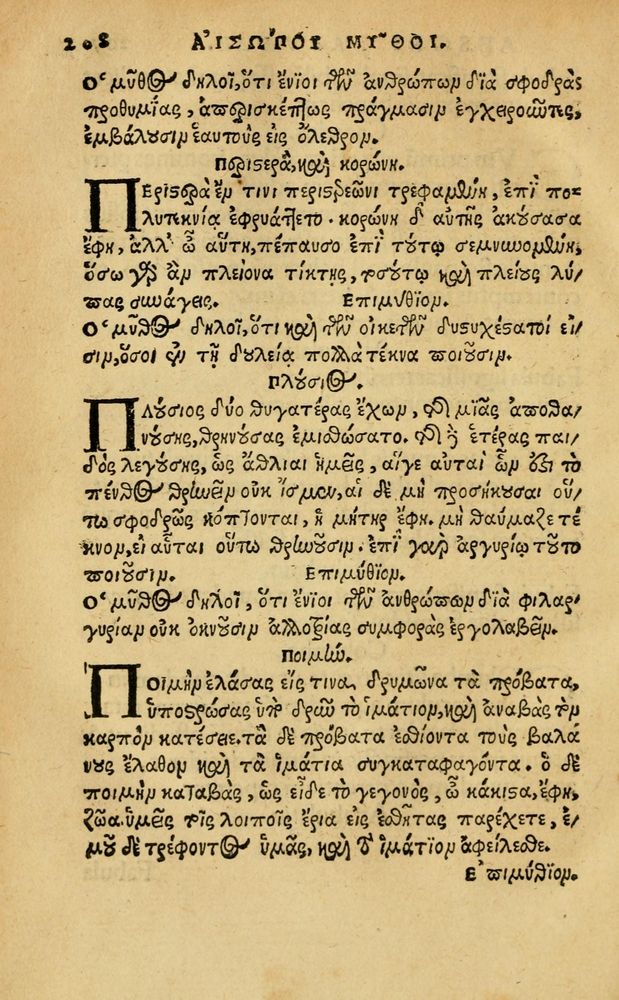 208 ΑἸΣΩΠΟΥ ΜΥ͂ΘΟΙ.
Ὁ μῦθος δηλοῖ, ὅτι ἔνιοι τῶν ἀνθρώπων διὰ σφοδρὰς
προθυμίας, ἀπερισκέπτως πράγμασιν ἐγχειροῦντες,
ἐμβάλουσιν ἑαυτοὺς εἰς ὄλεθρον.
Περιστερὰ, καὶ κορώνη.
ΠΕριστερὰ ἔν τινι περιστρεῶνι τρεφομένη, ἐπὶ πο-
λυτεκνία ἐφρυάττετο. κορώνη δ' αὐτῆς ἀκούσασα
ἔφη, ἀλλ' ὦ αὕτη, πέπαυσο ἐπὶ τούτῳ σεμνυνομένη,
ὅσῳ γὰρ ἂν πλείονα τίκτῃς, τοσούτῳ καὶ πλείους λύ/
πας συνάγεις. Ἐπιμύθιον.
Ὁ μῦθος δηλοῖ, ὅτι καὶ τῶν οἰκετῶν δυστυχέστατοί εἰ/
σιν, ὅσοι ἐν τῇ δουλείᾳ πολλὰ τέκνα ποιοῦσιν.
Πλούσιος.
ΠΛούσιος δύο θυγατέρας ἔχων, τῆς μιᾶς ἀποθα/
νούσης, θρηνούσας ἐμισθώσατο. τῆς δὲ ἑτέρας παι/
δὸς λεγούσης, ὡς ἄθλιαι ἡμεῖς, αἵγε αὐταὶ ὧν ἐστι τὸ
πένθος θρηνεῖν οὐκ ἴσμεν, αἱ δὲ μὴ προσήκουσαι οὕ/
τω σφοδρῶς κόπτονται, ἡ μήτηρ ἔφη. μὴ θαύμαζε τέ
κνον, εἰ αὗται οὕτω θρηνοῦσιν. ἐπὶ γὰρ ἀργυρίῳ τοῦτο
ποιοῦσιν. Ἐπιμύθιον.
Ὁ μῦθος δηλοῖ, ὅτι ἔνιοι τῶν ἀνθρώπων διὰ φιλαρ/
γυρίαν οὐκ ὀκνοῦσιν ἀλλοτρίας συμφορὰς ἐργολαβεῖν.
Ποιμήν.
ΠΟιμὴν ἐλάσας εἴς τινα δρυμῶνα τὰ πρόβατα,
ὑποστρώσας ὑπὸ δρῦν τὸ ἱμάτιον, καὶ ἀναβὰς τὸν
καρπὸν κατέσειε. τὰ δὲ πρόβατα ἐσθίοντα τοὺς βαλά
νους ἔλαθον καὶ τὰ ἱμάτια συγκαταφαγόντα. ὁ δὲ
ποιμὴν καταβὰς, ὡς εἶδε τὸ γεγονὸς, ὦ κάκιστα, ἔφη,
ζῶα. ὑμεῖς τοῖς λοιποῖς ἔρια εἰς ἐσθῆτας παρέχετε, ἐ/
μοῦ δὲ τρέφοντος ὑμᾶς, καὶ τὸ ἱμάτιον ἀφείλεσθε.
Ἐπιμύθιον.